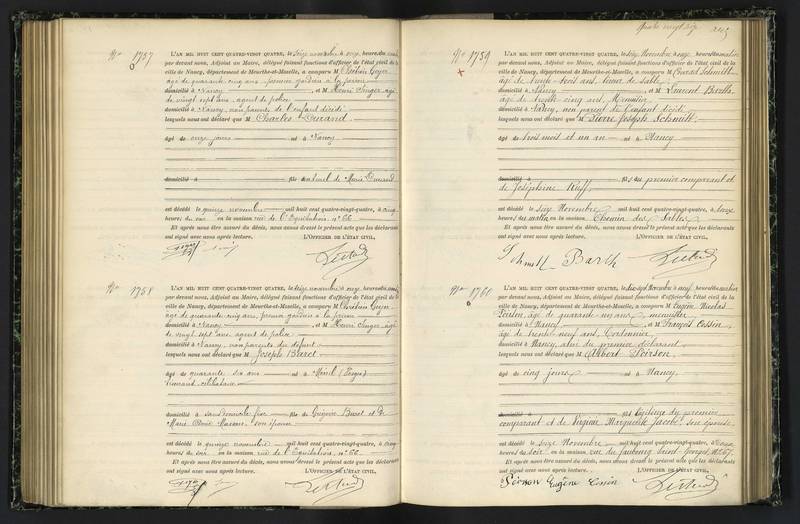 No 1757
L'AN MIL HUIT CENT QUATRE-VINGT QUATRE, le seize novembre à onze heures du matin
par devant nous, Adjoint au Maire, délégué faisant fonctions d'officier de l'état civil de la
ville de Nancy, département de Meurthe-et-Moselle, a comparu M
âgé de quarante cinq ans, premier gardien à la prison
domicilié à Nancy et M Henri Singer, âgé
de vingt sept ans, agent de police
domicilié à Nancy, non parents de l'enfant décédé
lesquels nous ont déclaré que M Charles Durand
âgé de onze jours né à Nancy
domicilié à fils naturel de Marie Durand
est décédé le quinze novembre mil huit cent quatre-vingt-quatre, à cinq
heures du soir en la maison rue de l'Equitation, no 66
Et après nous être assuré du décès, nous avons dressé le présent acte que les déclarants
ont signé avec nous après lecture. L'OFFICIER DE L'ÉTAT CIVIL,
No 1758
L'AN MIL HUIT CENT QUATRE-VINGT QUATRE, le seize novembre à onze heures du matin
par devant nous, Adjoint au Maire, délégué faisant fonctions d'officier de l'état civil de la
ville de Nancy, département de Meurthe-et-Moselle, a comparu M
âgé de quarante cinq ans, premier gardien à la prison
domicilié à Nancy et M Henri Singer, âgé
de vingt sept ans, agent de police
domicilié à Nancy, non parents du défunt
lesquels nous ont déclaré que M Joseph
âgé de quarante six ans né à (Vosges)
vivant célibataire
domicilié à sans domicile fixe fils de Grégoire et de
Marie son épouse
est décédé le quinze novembre mil huit cent quatre-vingt-quatre, à cinq
heures du soir en la maison rue de l'Equitation, no 66
Et après nous être assuré du décès, nous avons dressé le présent acte que les déclarants
ont signé avec nous après lecture. L'OFFICIER DE L'ÉTAT CIVIL,
No 1759
L'AN MIL HUIT CENT QUATRE-VINGT QUATRE, le seize Novembre à onze heures du matin
par devant nous, Adjoint au Maire, délégué faisant fonctions d'officier de l'état civil de la
ville de Nancy, département de Meurthe-et-Moselle, a comparu M Conrad Schmitt
âgé de trente trois ans, tireur de sable
domicilié à Nancy et M Laurent Barth
âgé de trente cinq ans,
domicilié à Nancy, non parent de l'enfant décédé
lesquels nous ont déclaré que M Pierre Joseph Schmitt
âgé de trois mois et un an né à Nancy
domicilié à fils du premier comparant et
de Joséphine Ruff
est décédé le seize Novembre mil huit cent quatre-vingt-quatre, à
heures du matin en la maison Chemin des Sables
Et après nous être assuré du décès, nous avons dressé le présent acte que les déclarants
ont signé avec nous après lecture. L'OFFICIER DE L'ÉTAT CIVIL,
Schmitt Barth
No 1760
L'AN MIL HUIT CENT QUATRE-VINGT QUATRE, le dix-sept Novembre à neuf heures du matin
par devant nous, Adjoint au Maire, délégué faisant fonctions d'officier de l'état civil de la
ville de Nancy, département de Meurthe-et-Moselle, a comparu M Eugène Nicolas
Poirson, âgé de quarante un ans, menuisier
domicilié à Nancy et M François Cossin
âgé de trente neuf ans, Cordonnier
domicilié à Nancy, ami du premier déclarant
lesquels nous ont déclaré que M Albert Poirson
âgé de cinq jours né à Nancy
domicilié à fils légitime du premier
comparant et de Virginie Marguerite Jacobé, son épouse
est décédé le seize Novembre mil huit cent quatre-vingt-quatre, à
heures du soir en la maison rue du faubourg Saint-Georges, No 67
Et après nous être assuré du décès, nous avons dressé le présent acte que les déclarants
ont signé avec nous après lecture. L'OFFICIER DE L'ÉTAT CIVIL,
Poirson Eugène Cossin